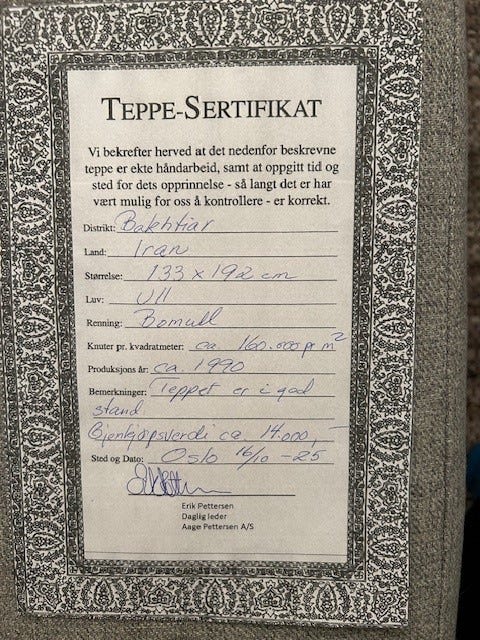 TEPPE-SERTIFIKAT
Vi bekrefter herved at det nedenfor beskrevne
teppe er ekte håndarbeid, samt at oppgitt tid og
sted for dets opprinnelse - så langt det er har
vært mulig for oss å kontrollere - er korrekt.
Distrikt: Bakhtiar
Land: Iran
Størrelse: 133 x 192 cm
Luv: Ull
Renning: Bomull
Knuter pr. kvadratmeter: ca. 160.000 pr m²
Produksjons år: ca. 1990
Bemerkninger: Teppet er i god
stand
Gjenkjøpsverdi ca 14.000,-
Sted og Dato: Oslo 16/10 -25
Erik Pettersen
Daglig leder
Aage Pettersen A/S